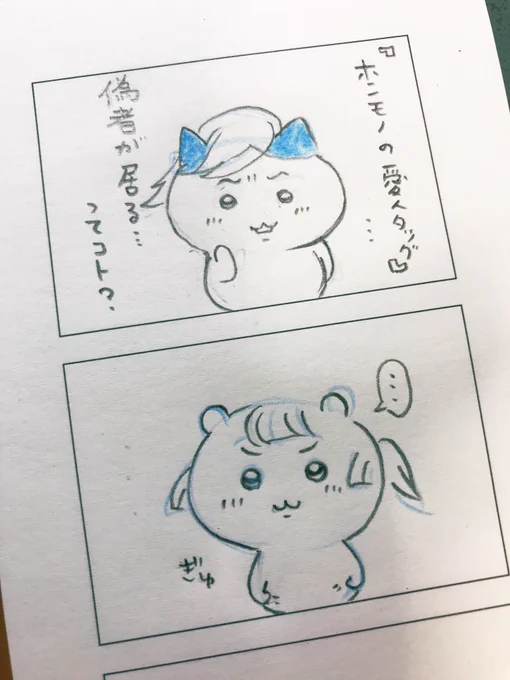 『ホンモノの愛人タッグ』
…
偽者が居る…
ってコト?
…
ぎゅ